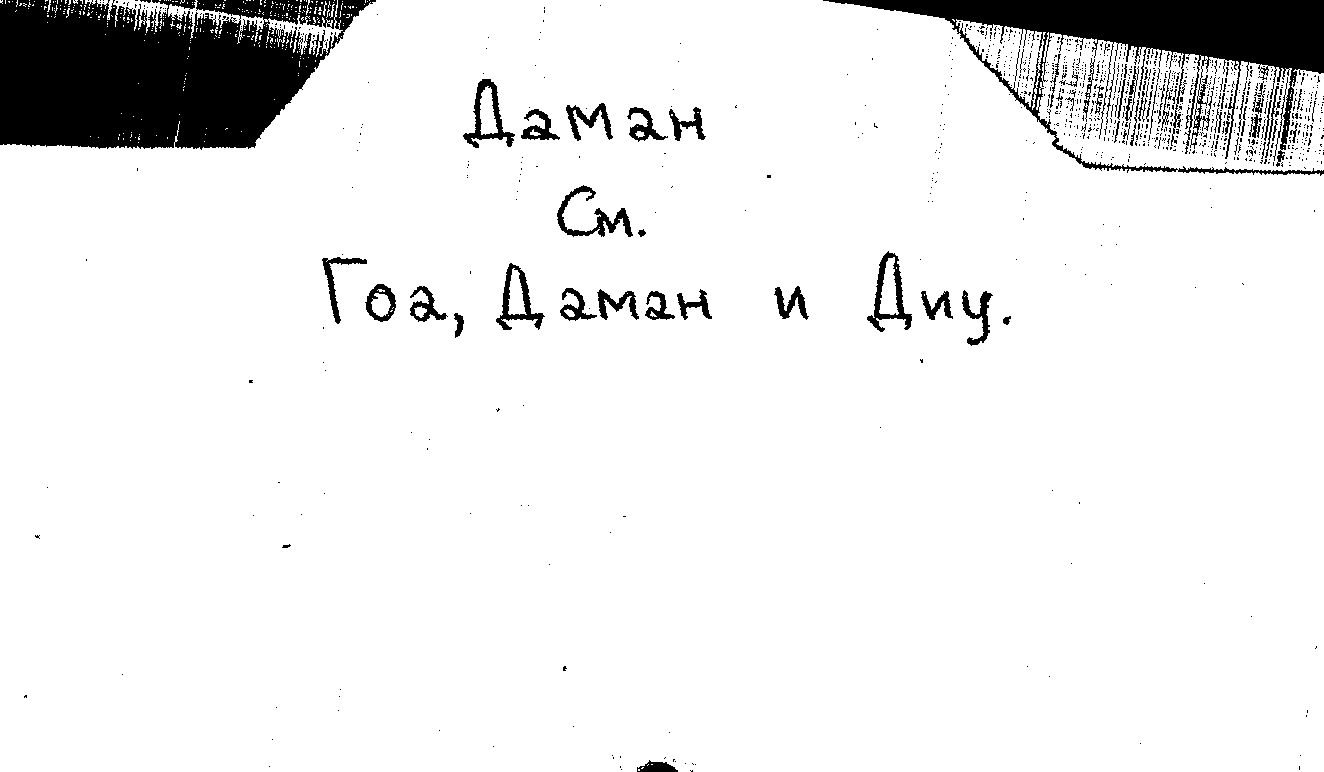 Даман
См.
Гоа, Даман и Диу.